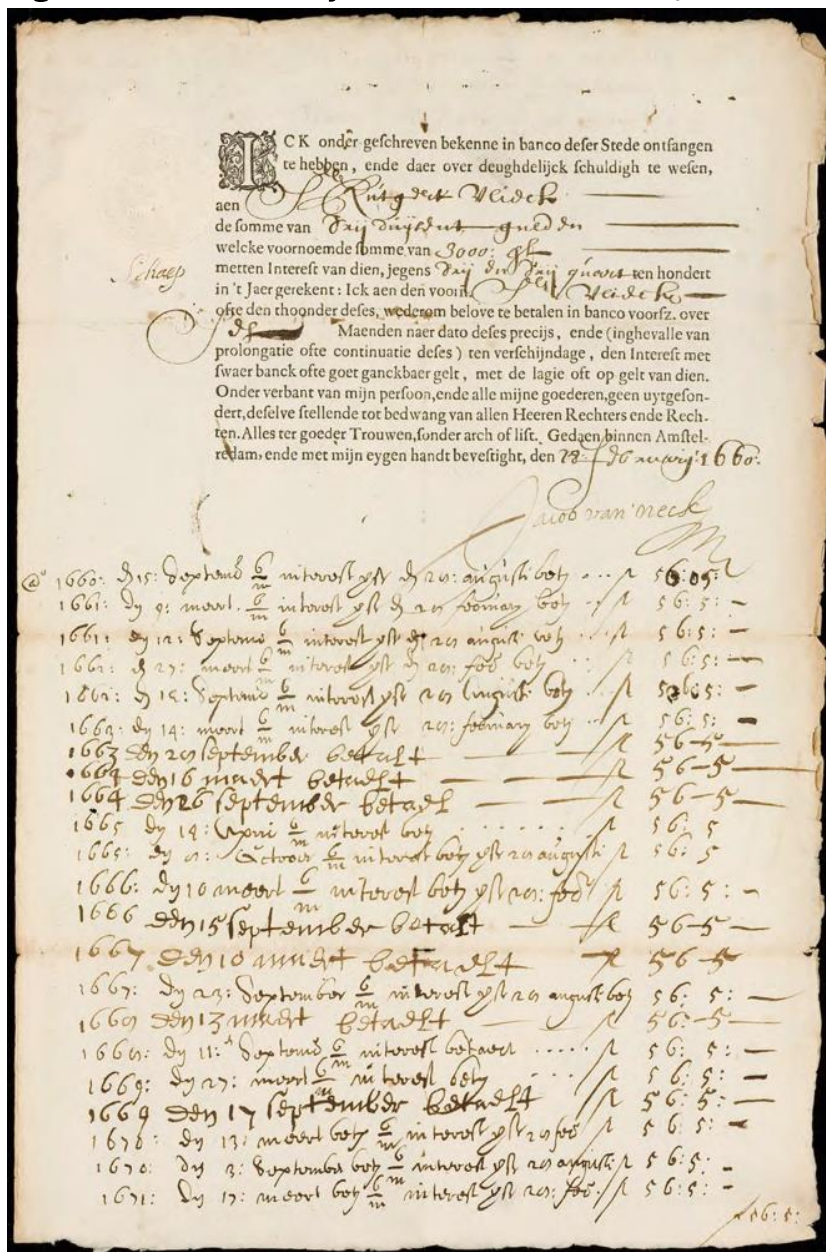 ICK onder geschreven bekenne in banco deser Stede ontfangen
te hebben, ende daer over deughdelijck schuldigh te wesen,
aen Sr Rutgert Vlieck
de somme van drij duijsent gulden
welcke voornoemde somme van 3000: gl
metten Interest van dien, jegens drij en drij quart ten hondert
in 't Jaer gerekent: Ick aen den voorn. Sr Vlieck
Schaep
ofte den thoonder deses, wederom belove te betalen in banco voorsz. over
ses Maenden naer dato deses precijs, ende (inghevalle van
prolongatie ofte continuatie deses) ten verschijndage, den Interest met
swaer banck ofte goet ganckbaer gelt, met de lagie oft op gelt van dien.
Onder verbant van mijn persoon, ende alle mijne goederen, geen uytgeson-
dert, deselve stellende tot bedwang van allen Heeren Rechters ende Rech-
ten. Alles ter goeder Trouwen, sonder arch of list. Gedaen binnen Amstel-
redam, ende met mijn eygen handt bevestight, den februarij 1660:
Jacob van neck
1660: dy 15: Septemb 6/m interest pr dy augusti bet 56:05:
1661: dy 9: meert 6/m interest pr dy february bet 56:5:
1661: dy 12: Septemb 6/m interest pr dy augusti bet 56:5:
1662: dy 27: meert 6/m interest pr dy feb bet 56:5:
1662: dy Septemb 6/m interest pr augusti bet 56:5:
1663: dy 14: meert 6/m interest pr february bet 56:5:
1663 den september betaelt 56-5
1664 den 16 maert betaelt 56-5
1664 den 26 september betaelt 56-5
1665 dy 14: April 6/m interest bet 56:5
1665: dy October 6/m interest bet pr augusti 56:5
1666: dy 10 meert 6/m interest bet pr feb 56:5:
1666 den 15 september betaelt 56-5
1667 den 10 maert betaelt 56-5
1667: dy 23: September 6/m interest pr augusti bet 56:5:
1668 den 13 maert betaelt 56-5
1668: dy 11: Septemb 6/m interest betaelt 56:5:
1669: dy 27: meert 6/m interest bet 56:5:
1669 den 17 september betaelt 56:5:
1670: dy 13: meert bet 6/m interest pr feb 56:5:
1670: dy 3: September bet 6/m interest pr augusti 56:5:
1671: dy 17: meert bet 6/m interest pr feb: 56:5:
56:5: